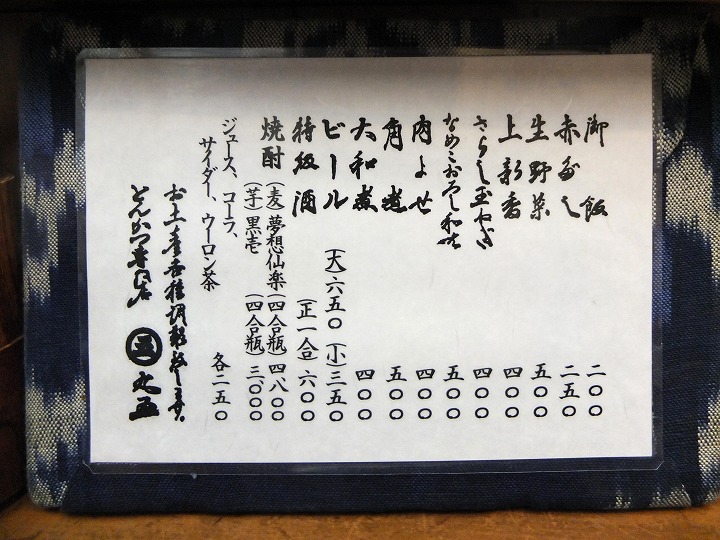 御飯 二〇〇
赤だし 二五〇
生野菜 五〇〇
上新香 四〇〇
さらし玉ねぎ 四〇〇
なめこおろし和え 五〇〇
肉よせ 四〇〇
角煮 五〇〇
大和煮 四〇〇
ビール (大)六五〇 (小)三五〇
特級酒 (正一合)六〇〇
焼酎 (麦)夢想仙楽(四合瓶)四八〇〇
(芋)黒壱 (四合瓶)三、〇〇〇
ジュース、コーラ、
サイダー、ウーロン茶 各二五〇
お土産各種調製致します。
とんかつ専門店 五 丸五